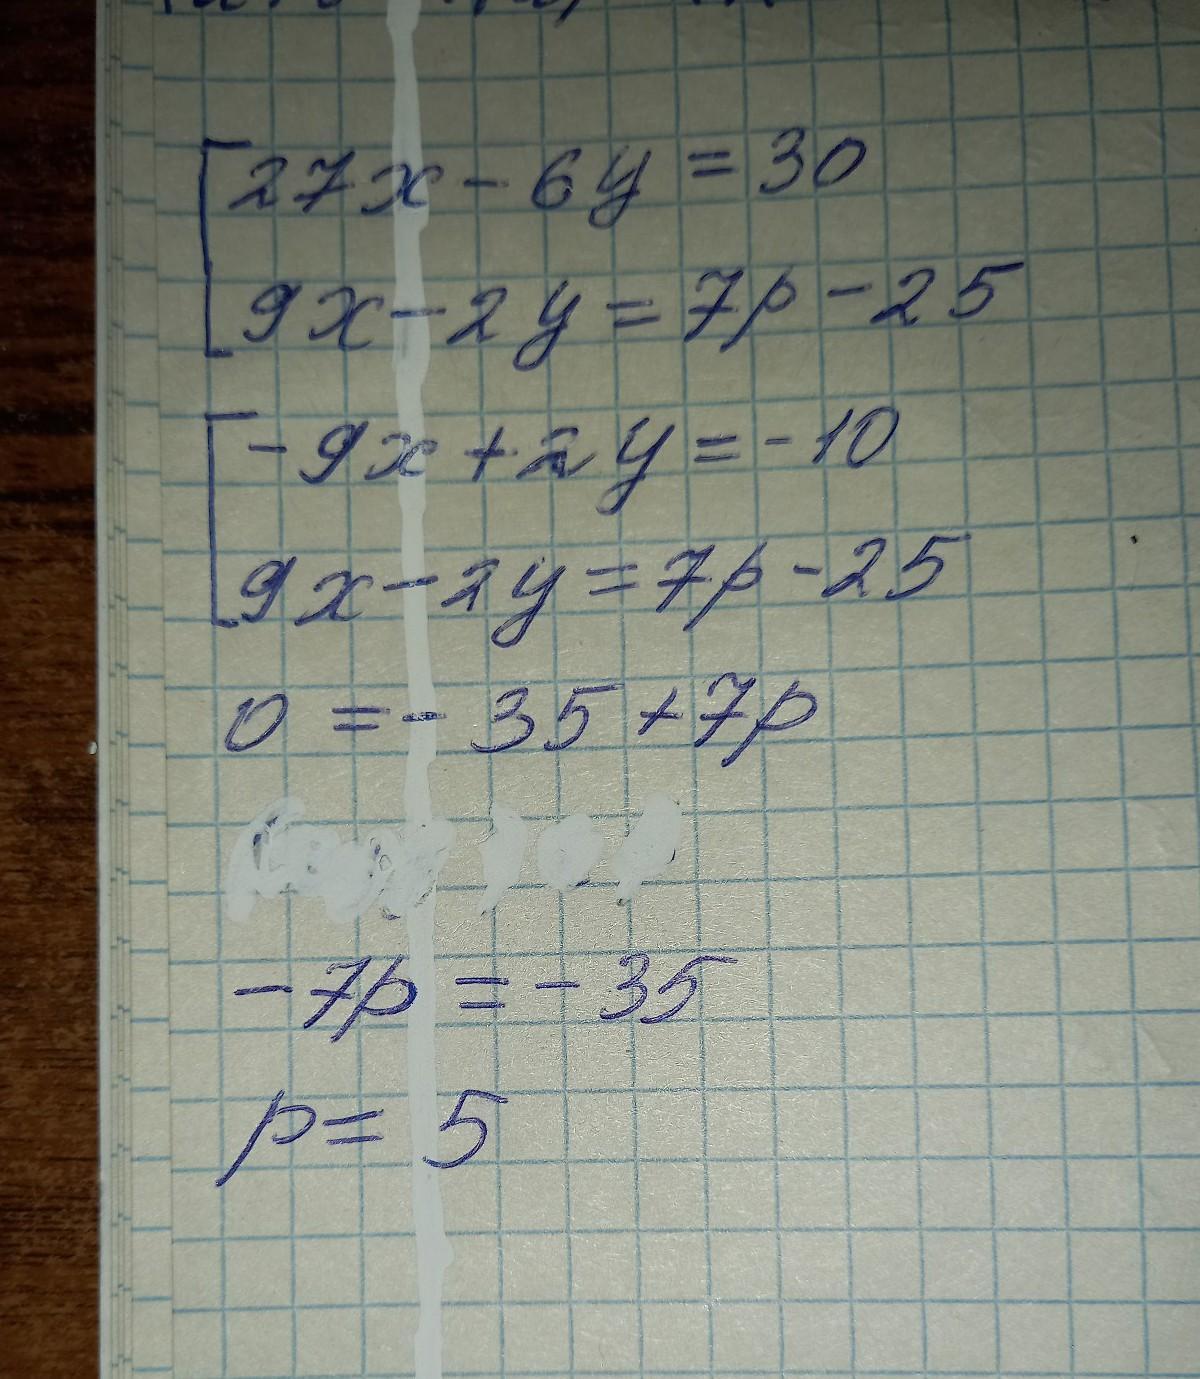 27x - 6y = 30
9x - 2y = 7p - 25
-9x + 2y = -10
9x - 2y = 7p - 25
0 = - 35 + 7p
-7p = - 35
p = 5